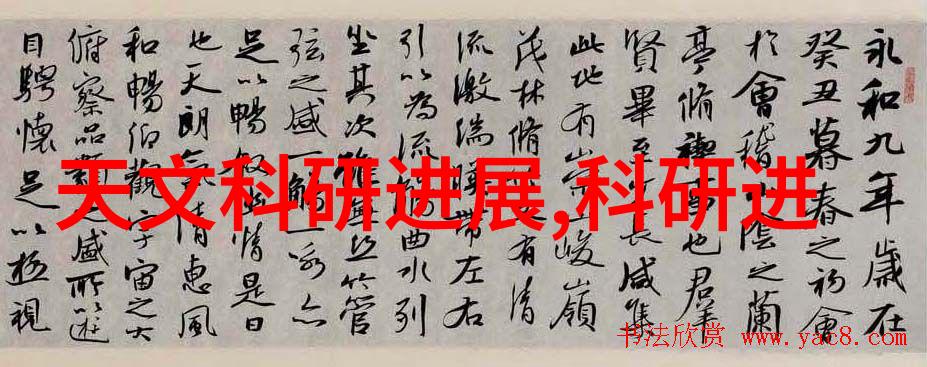 永和九年歲在
癸丑暮春之初會
於會稽山陰之蘭
亭脩禊事也羣
賢畢至少長咸集
此地有崇山峻嶺
茂林脩有清
流激湍暎帶左右
引以為流觴曲水列
坐其次雖無絲竹管
弦之盛一觴一詠亦
足以暢敘幽情是日
也天朗氣清惠風
和暢仰觀宇宙之大
俯察品類之盛所以遊
目騁懷足以極視
天文科研进展,科研进
书法欣赏 www.yac8.com